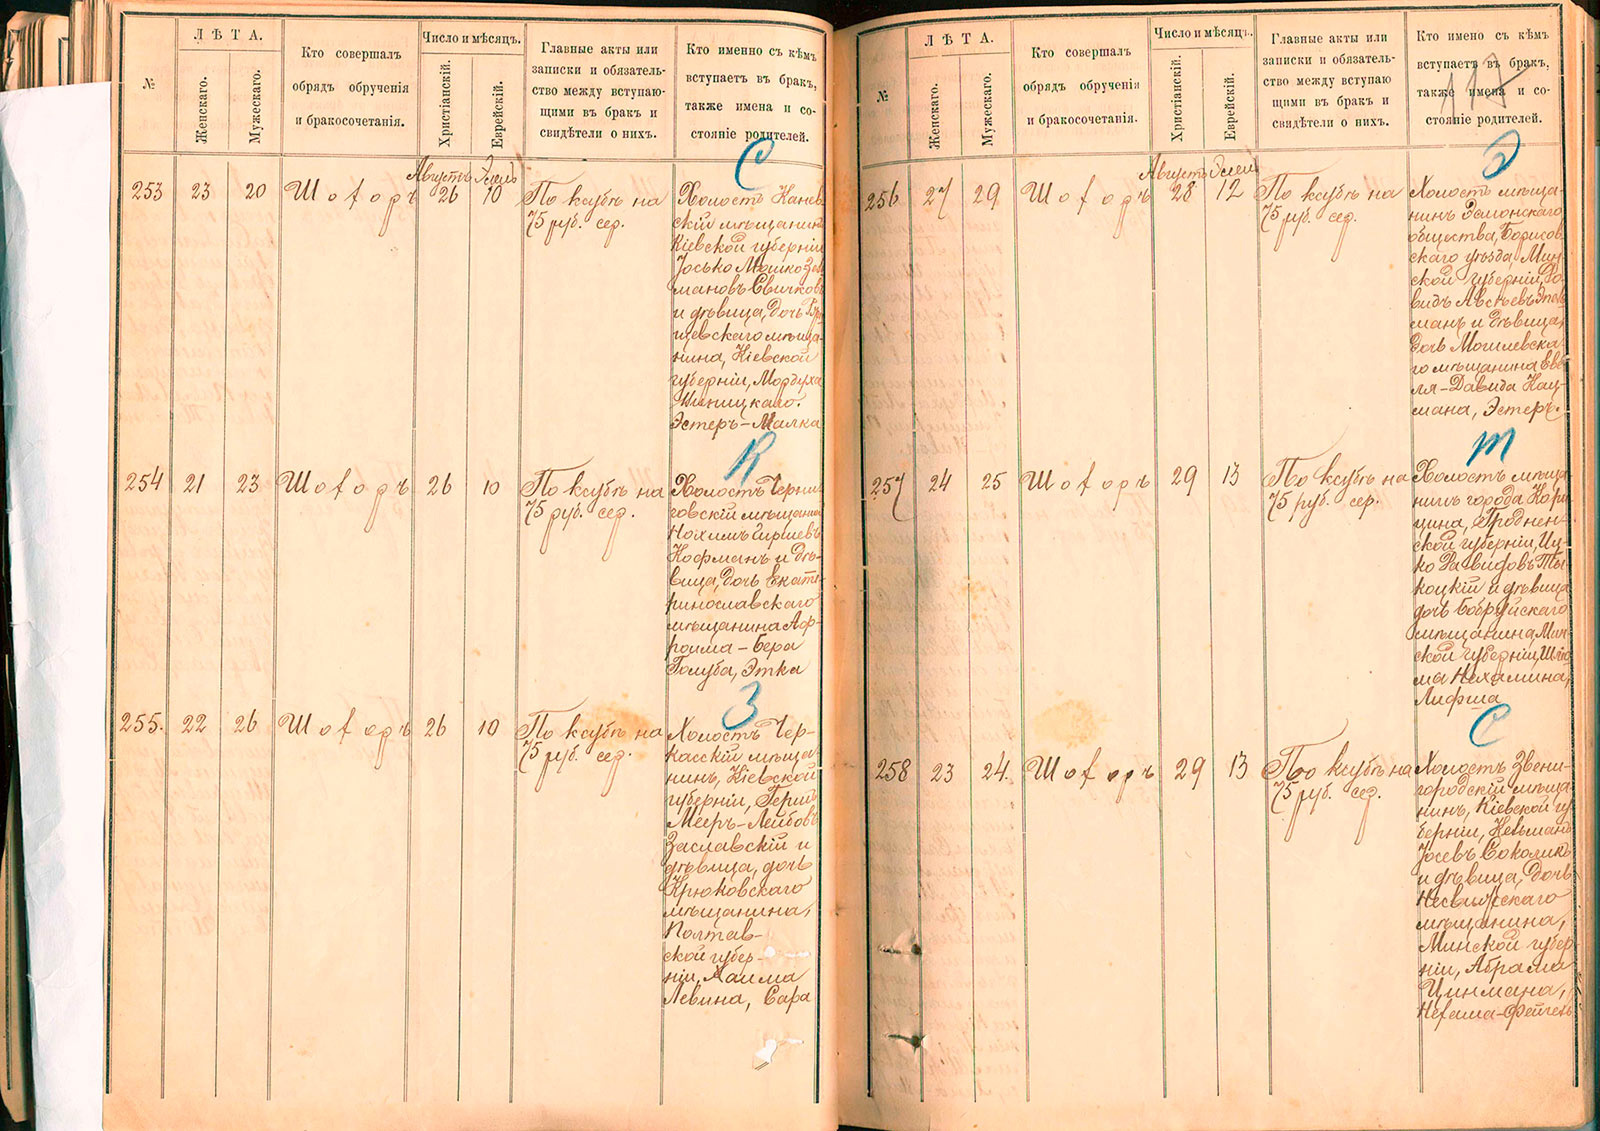 №
ЛѢТА.
Женскаго.
Мужескаго.
Кто совершалъ
обрядъ обрученія
и бракосочетанія.
Число и мѣсяцъ.
Христіанскій.
Еврейскій.
Главные акты или
записки и обязатель-
ство между вступаю-
щими въ бракъ и
свидѣтели о нихъ.
Кто именно съ кѣмъ
вступаетъ въ бракъ,
также имена и со-
стояніе родителей.
С
Августъ Элель
253 23 20 Шоforъ 26 10 По ксубѣ на
75 руб. сер.
Холостъ Канев-
скій мѣщанинъ
Кіевской губерніи
Іосько Мошко Зель
мановъ Свичковъ
и дѣвица, дочь
щевскаго мѣща-
нина, Кіевской
губерніи, Мордуха
Эстеръ-Малка
К
254 21 23 Шоforъ 26 10 По ксубѣ на
75 руб. сер.
Холостъ Черни-
говскій мѣщанинъ
Нохимъ Гиршевъ
Кофманъ и дѣ-
вица, дочь Екате-
ринославскаго
мѣщанина Аф-
роима-Бера
Голуба, Этка
З
255. 22 26 Шоforъ 26 10 По ксубѣ на
75 руб. сер.
Холостъ Чер-
касскій мѣща-
нинъ, Кіевской
губерніи, Герш
Мееръ-Лейбовъ
Заславскій и
дѣвица, дочь
Крюковскаго
мѣщанина,
Полтав-
ской губер-
ніи, Хаима
Левина, Сара
№
ЛѢТА.
Женскаго.
Мужескаго.
Кто совершалъ
обрядъ обрученія
и бракосочетанія.
Число и мѣсяцъ.
Христіанскій.
Еврейскій.
Главные акты или
записки и обязатель-
ство между вступаю
щими въ бракъ и
свидѣтели о нихъ.
Кто имено съ кѣмъ
вступаетъ въ бракъ,
также имена и со-
стояніе родителей.
115
Э
Августъ Элель
256 27 29 Шоforъ 28 12 По ксубѣ на
75 руб. сер.
Холостъ мѣща-
нинъ Эсмонскаго
общества, Борисов-
скаго уѣзда, Мин-
ской губерніи, До-
видъ Авсѣевъ Эпель
манъ и дѣвица,
дочь Могилевска-
го мѣщанина Ев
ля-Давида Кац-
мана, Эстеръ.
Т
257 24 25 Шоforъ 29 13 По ксубѣ на
75 руб. сер.
Холостъ мѣща-
нинъ города Кори
цина, Гроднен-
ской губерніи, Иц-
ко Давидовъ Ты-
коцкій и дѣвица
дочь Бобруйскаго
мѣщанина, Мин-
ской губерніи, Шлио
ма Нехамина,
Лифша
С
258 23 24. Шоforъ 29 13 По ксубѣ на
75 руб. сер.
Холостъ Звени-
городскій мѣща-
нинъ, Кіевской гу
берніи, Кельманъ
Іосевъ Соколикъ
и дѣвица, дочь
Несвижскаго
мѣщанина,
Минской губер-
ніи, Абрама
Цинмана,
Нехама-Фейгель